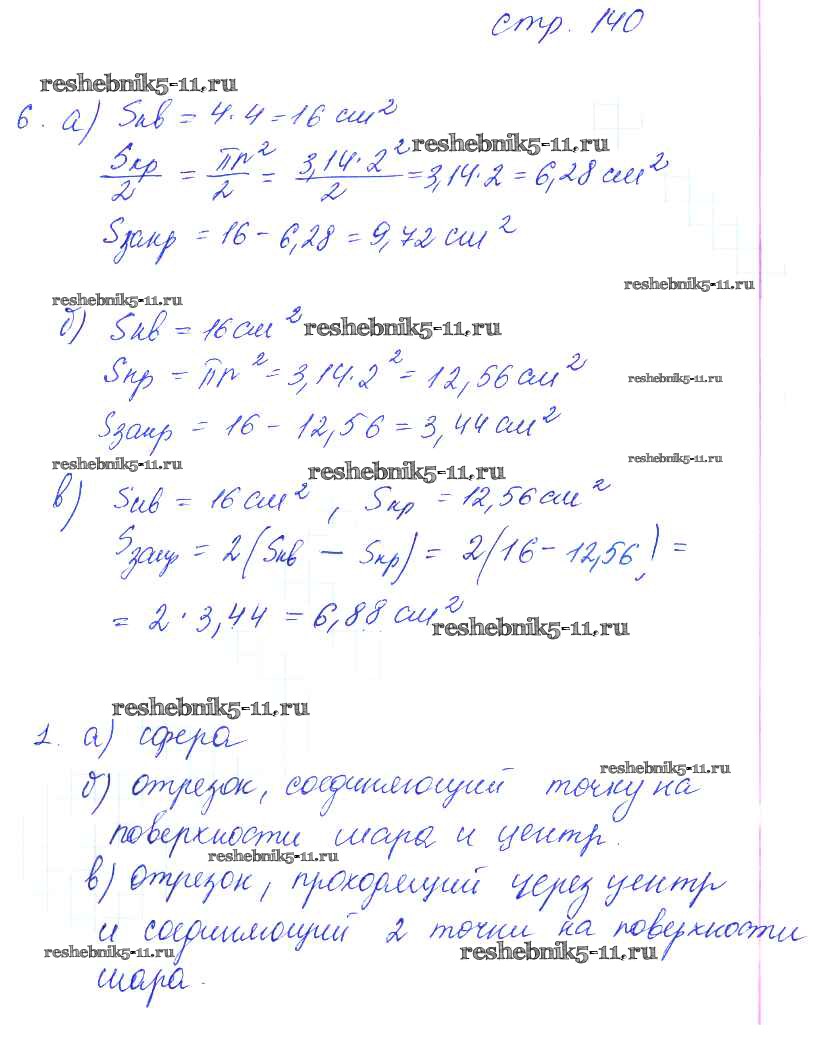 стр. 140
reshebnik5-11.ru
6. а) Sкв = 4·4 = 16 см²
reshebnik5-11.ru
Sкр/2 = πr²/2 = 3,14·2²/2 = 3,14·2 = 6,28 см²
Sзакр = 16 - 6,28 = 9,72 см²
reshebnik5-11.ru
reshebnik5-11.ru
б) Sкв = 16 см²
reshebnik5-11.ru
Sкр = πr² = 3,14·2² = 12,56 см²
reshebnik5-11.ru
Sзакр = 16 - 12,56 = 3,44 см²
reshebnik5-11.ru
reshebnik5-11.ru
reshebnik5-11.ru
в) Sкв = 16 см², Sкр = 12,56 см²
Sзакр = 2(Sкв - Sкр) = 2(16 - 12,56) =
= 2·3,44 = 6,88 см²
reshebnik5-11.ru
reshebnik5-11.ru
1. а) сфера
reshebnik5-11.ru
б) отрезок, соединяющий точку на
поверхности шара и центр.
reshebnik5-11.ru
в) отрезок, проходящий через центр
и соединяющий 2 точки на поверхности
reshebnik5-11.ru
reshebnik5-11.ru
шара.